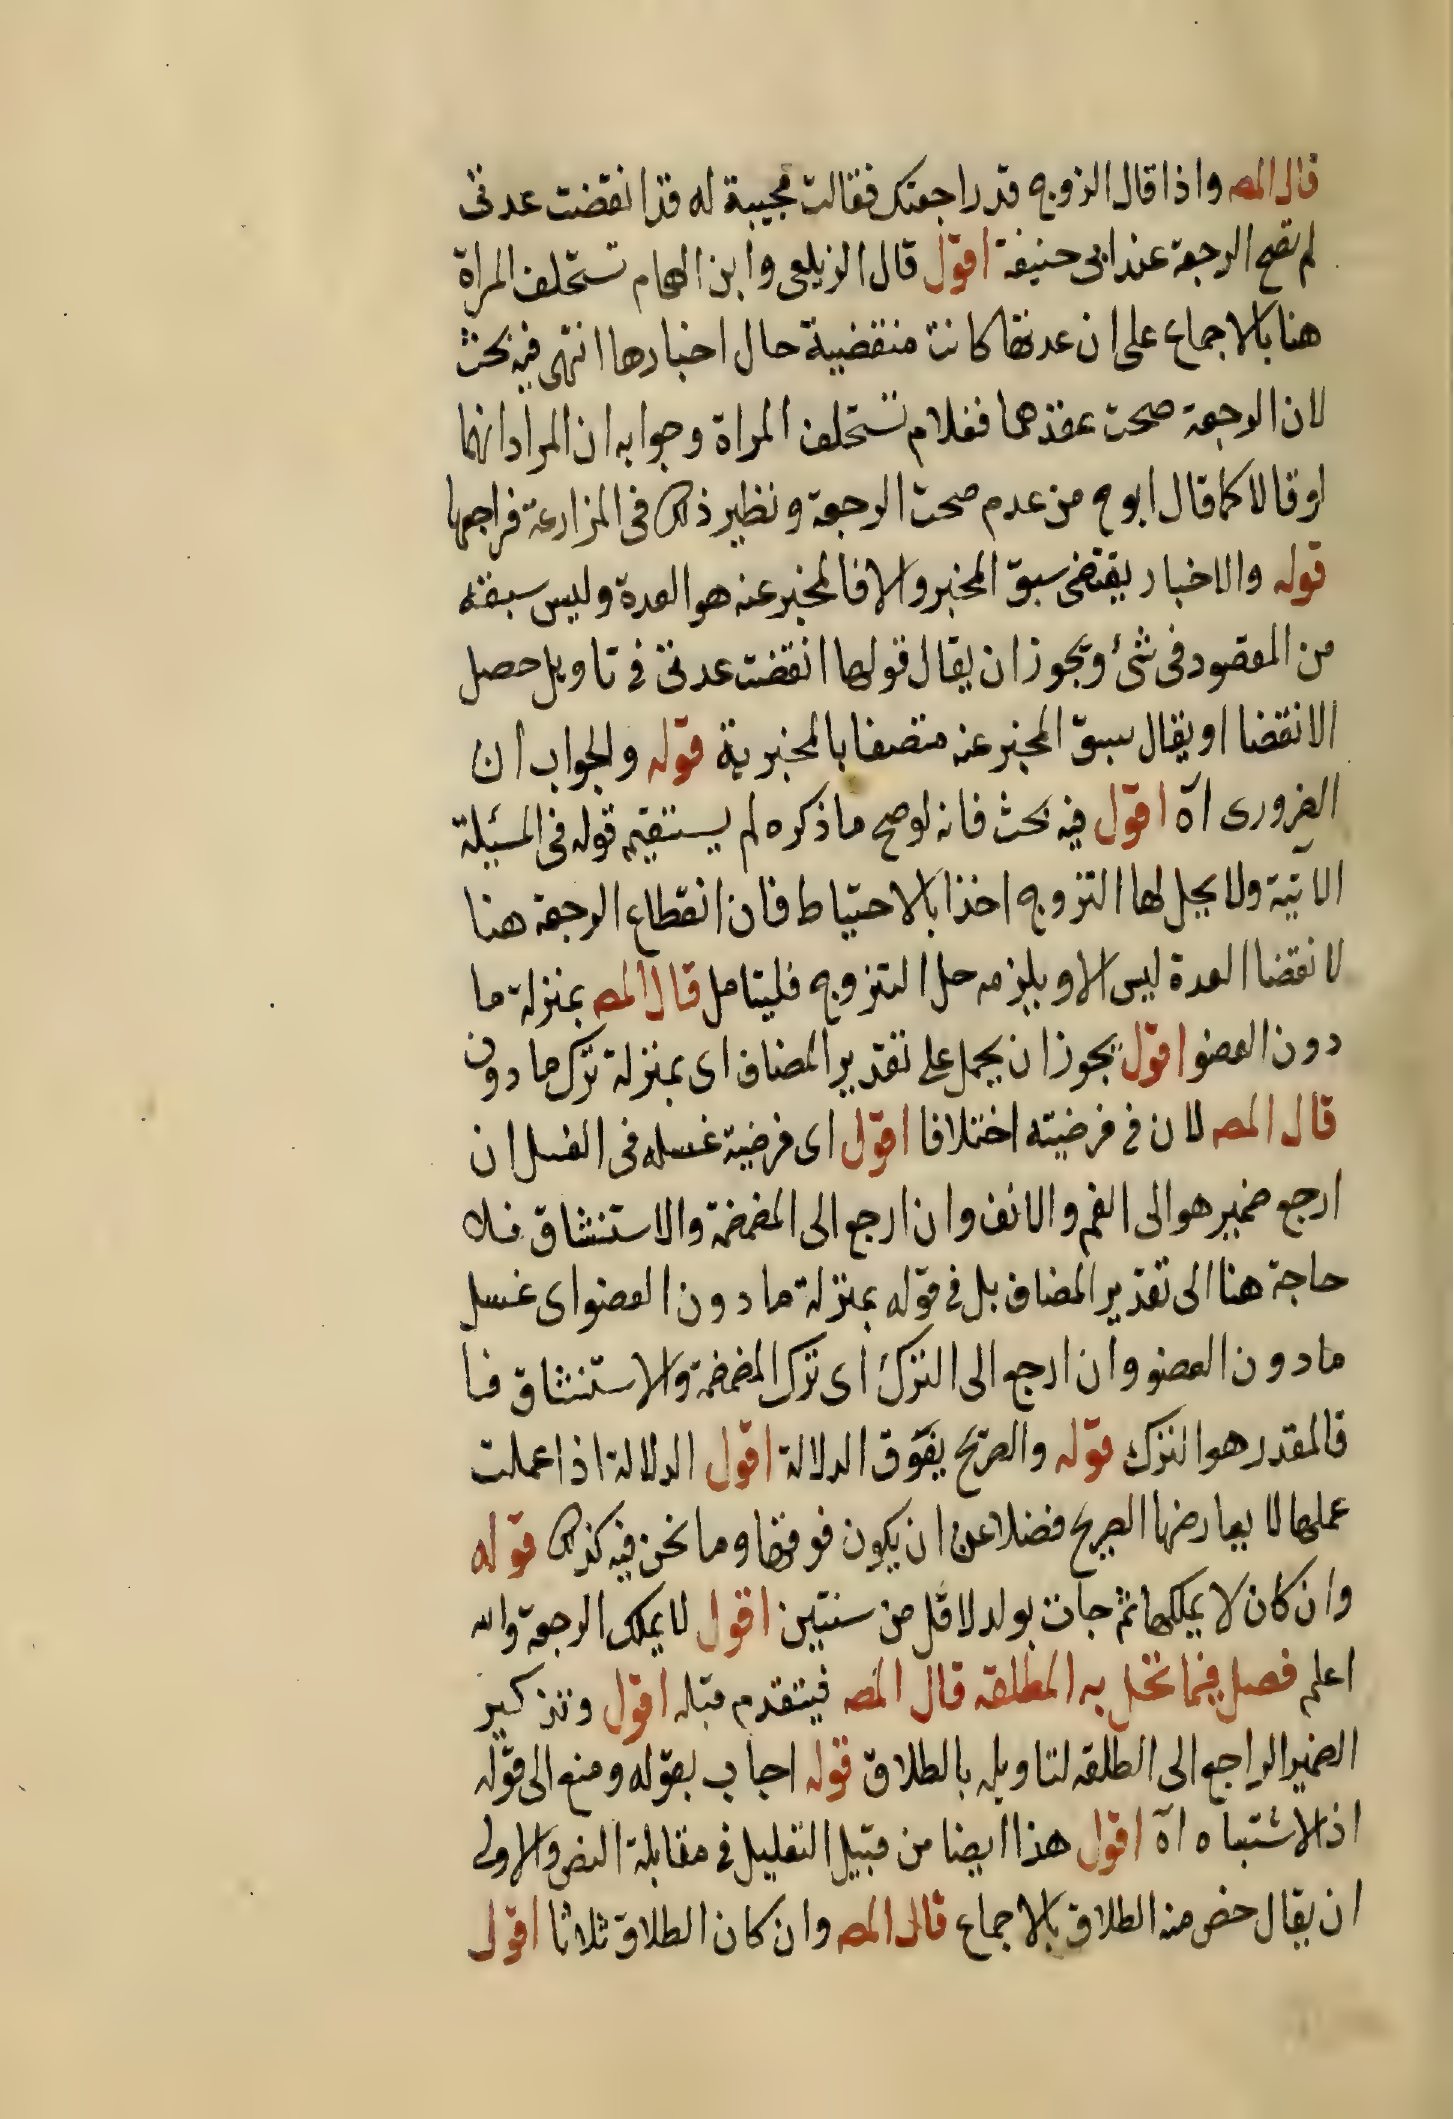 قال المص واذا قال الزوج قد راجعتك فقالت مجيبة له قد انقضت عدتى
لم تصح الرجعة عند ابى حنيفة اقول قال الزيلعى وابن الهمام تستحلف المراة
هنا بالاجماع على ان عدتها كانت منقضية حال اخبارها انتهى فيه بحث
لان الرجعة صحت عندهما فعلام تستحلف المراة وجوابه ان المراد انهما
لو قالا كما قال ابو ح من عدم صحت الرجعة ونظير ذلك فى المزارعة فراجعها
قوله والاخبار يقتضى سبق المخبر والا فالمخبر عنه هو العدة وليس سبقته
من المقصود فى شئ ويجوز ان يقال قولها انقضت عدتى فى تاويل حصل
الانقضا او يقال سبق المخبر عنه متصفا بالمخبرية قوله والجواب ان
الضرورى اه اقول فيه بحث فانه لو صح ما ذكره لم يستقيم قوله فى المسئلة
الاتية ولا يحل لها التزوج اخذا بالاحتياط فان انقطاع الرجعة هنا
لانقضا العدة ليس الا ويلزمه حل التزوج فليتامل قال المص بمنزلة ما
دون العضو اقول يجوز ان يحمل على تقدير المضاف اى بمنزلة ترك ما دون
قال المص لان فى فرضيته اختلافا اقول اى فرضية غسله فى الغسل ان
ارجع ضمير هو الى الفم والانف وان ارجع الى المضمضة والاستنشاق فلا
حاجة هنا الى تقدير المضاف بل فى قوله بمنزلة ما دون العضو اى غسل
ما دون العضو وان ارجع الى الترك اى ترك المضمضة والاستنشاق فا
فالمقدر هو الترك قوله والصريح يفوق الدلالة اقول الدلالة اذا عملت
عملها لا يعارضها الصريح فضلا عن ان يكون فوقها وما نحن فيه كذلك قوله
وان كان لا يملكها ثم جات بولد لاقل من سنتين اقول لا يملك الرجعة والله
اعلم فصل فيما تحل به المطلقة قال المص فيتقدم قبله اقول وتذكير
الضمير الراجع الى الطلقة لتاويله بالطلاق قوله اجاب بقوله ومنع الى قوله
اذ لا شتباه اه اقول هذا ايضا من قبيل التعليل فى مقابلة النص والاولى
ان يقال خص منه الطلاق بالاجماع قال المص وان كان الطلاق ثلاثا اقول